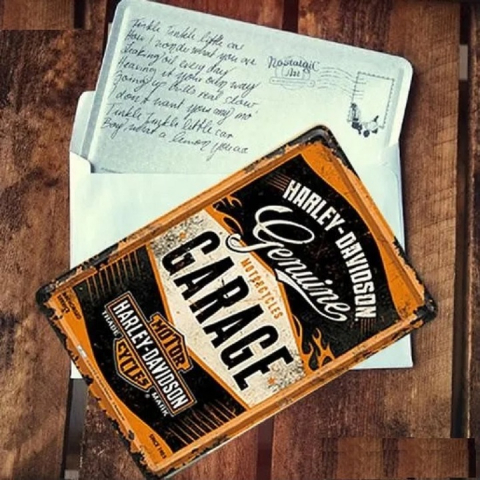 Twinkle Twinkle little car
How I wonder what you are
Leaking oil every day
Hearing it your only way
Going up hills real slow
I don't want you any mo'
Twinkle Twinkle little car
Boy, what a lemon you are
Nostalgic
Art
HARLEY-DAVIDSON
Genuine
MOTORCYCLES
GARAGE
MOTOR
HARLEY-DAVIDSON
CYCLES
TRADE MARK
SINCE 1903